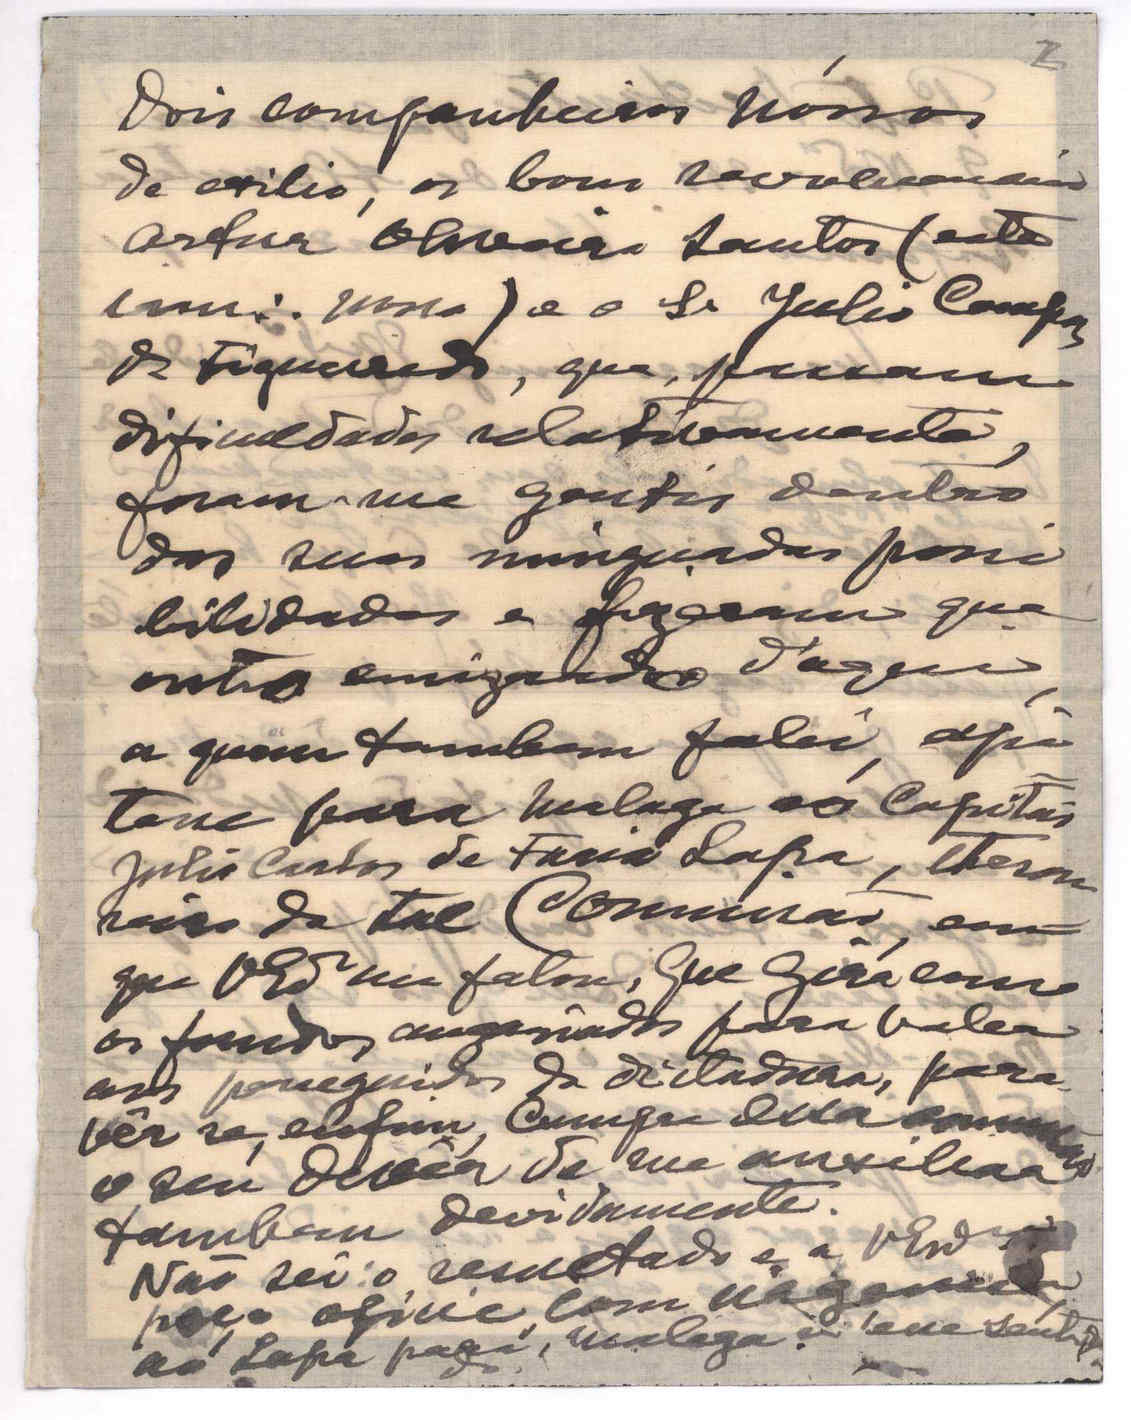 2
Dois companheiros nóssos
de exilio, os bons revolucionarios
Artur Oliveira Santos (este
irm∴ nosso) e o Sr Julio Campos
de Figueiredo, que, passam
dificuldades relativamente,
foram-me gentis dentro
das suas minguadas possi
bilidades e fizeram que
outro emigrado d'aqui,
a quem tambem falei, ofi
ciasse para Malaga ao Capitão
Julio Carlos de Faria Lapa, thesou
reiro da tal Commissão, em
que VExª me falou, que gira com
os fundos angariados para valer
aos perseguidos da dictadura, para
vêr se, enfim, cumpre essa commissão
o seu devêr de me auxiliar
tambem devidamente.
Não sei o resultado e a VExª
peço oficie, com urgencia,
ao Lapa para Malaga n'esse sentido.